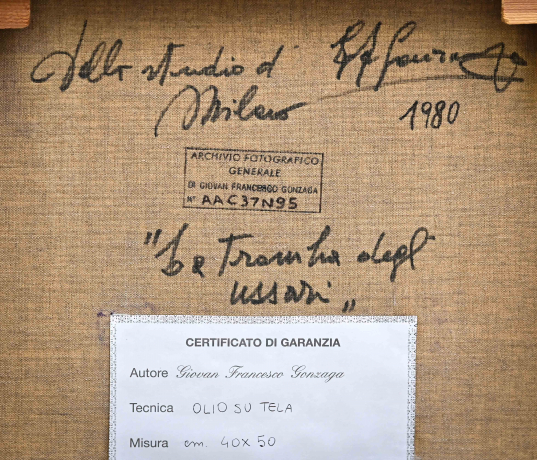 Dallo studio di GF Gonzaga
Milano
1980
ARCHIVIO FOTOGRAFICO
GENERALE
DI GIOVAN FRANCESCO GONZAGA
N° AAC37N95
"La Tromba degli
ussari"
CERTIFICATO DI GARANZIA
Autore Giovan Francesco Gonzaga
Tecnica OLIO SU TELA
Misura cm. 40X50